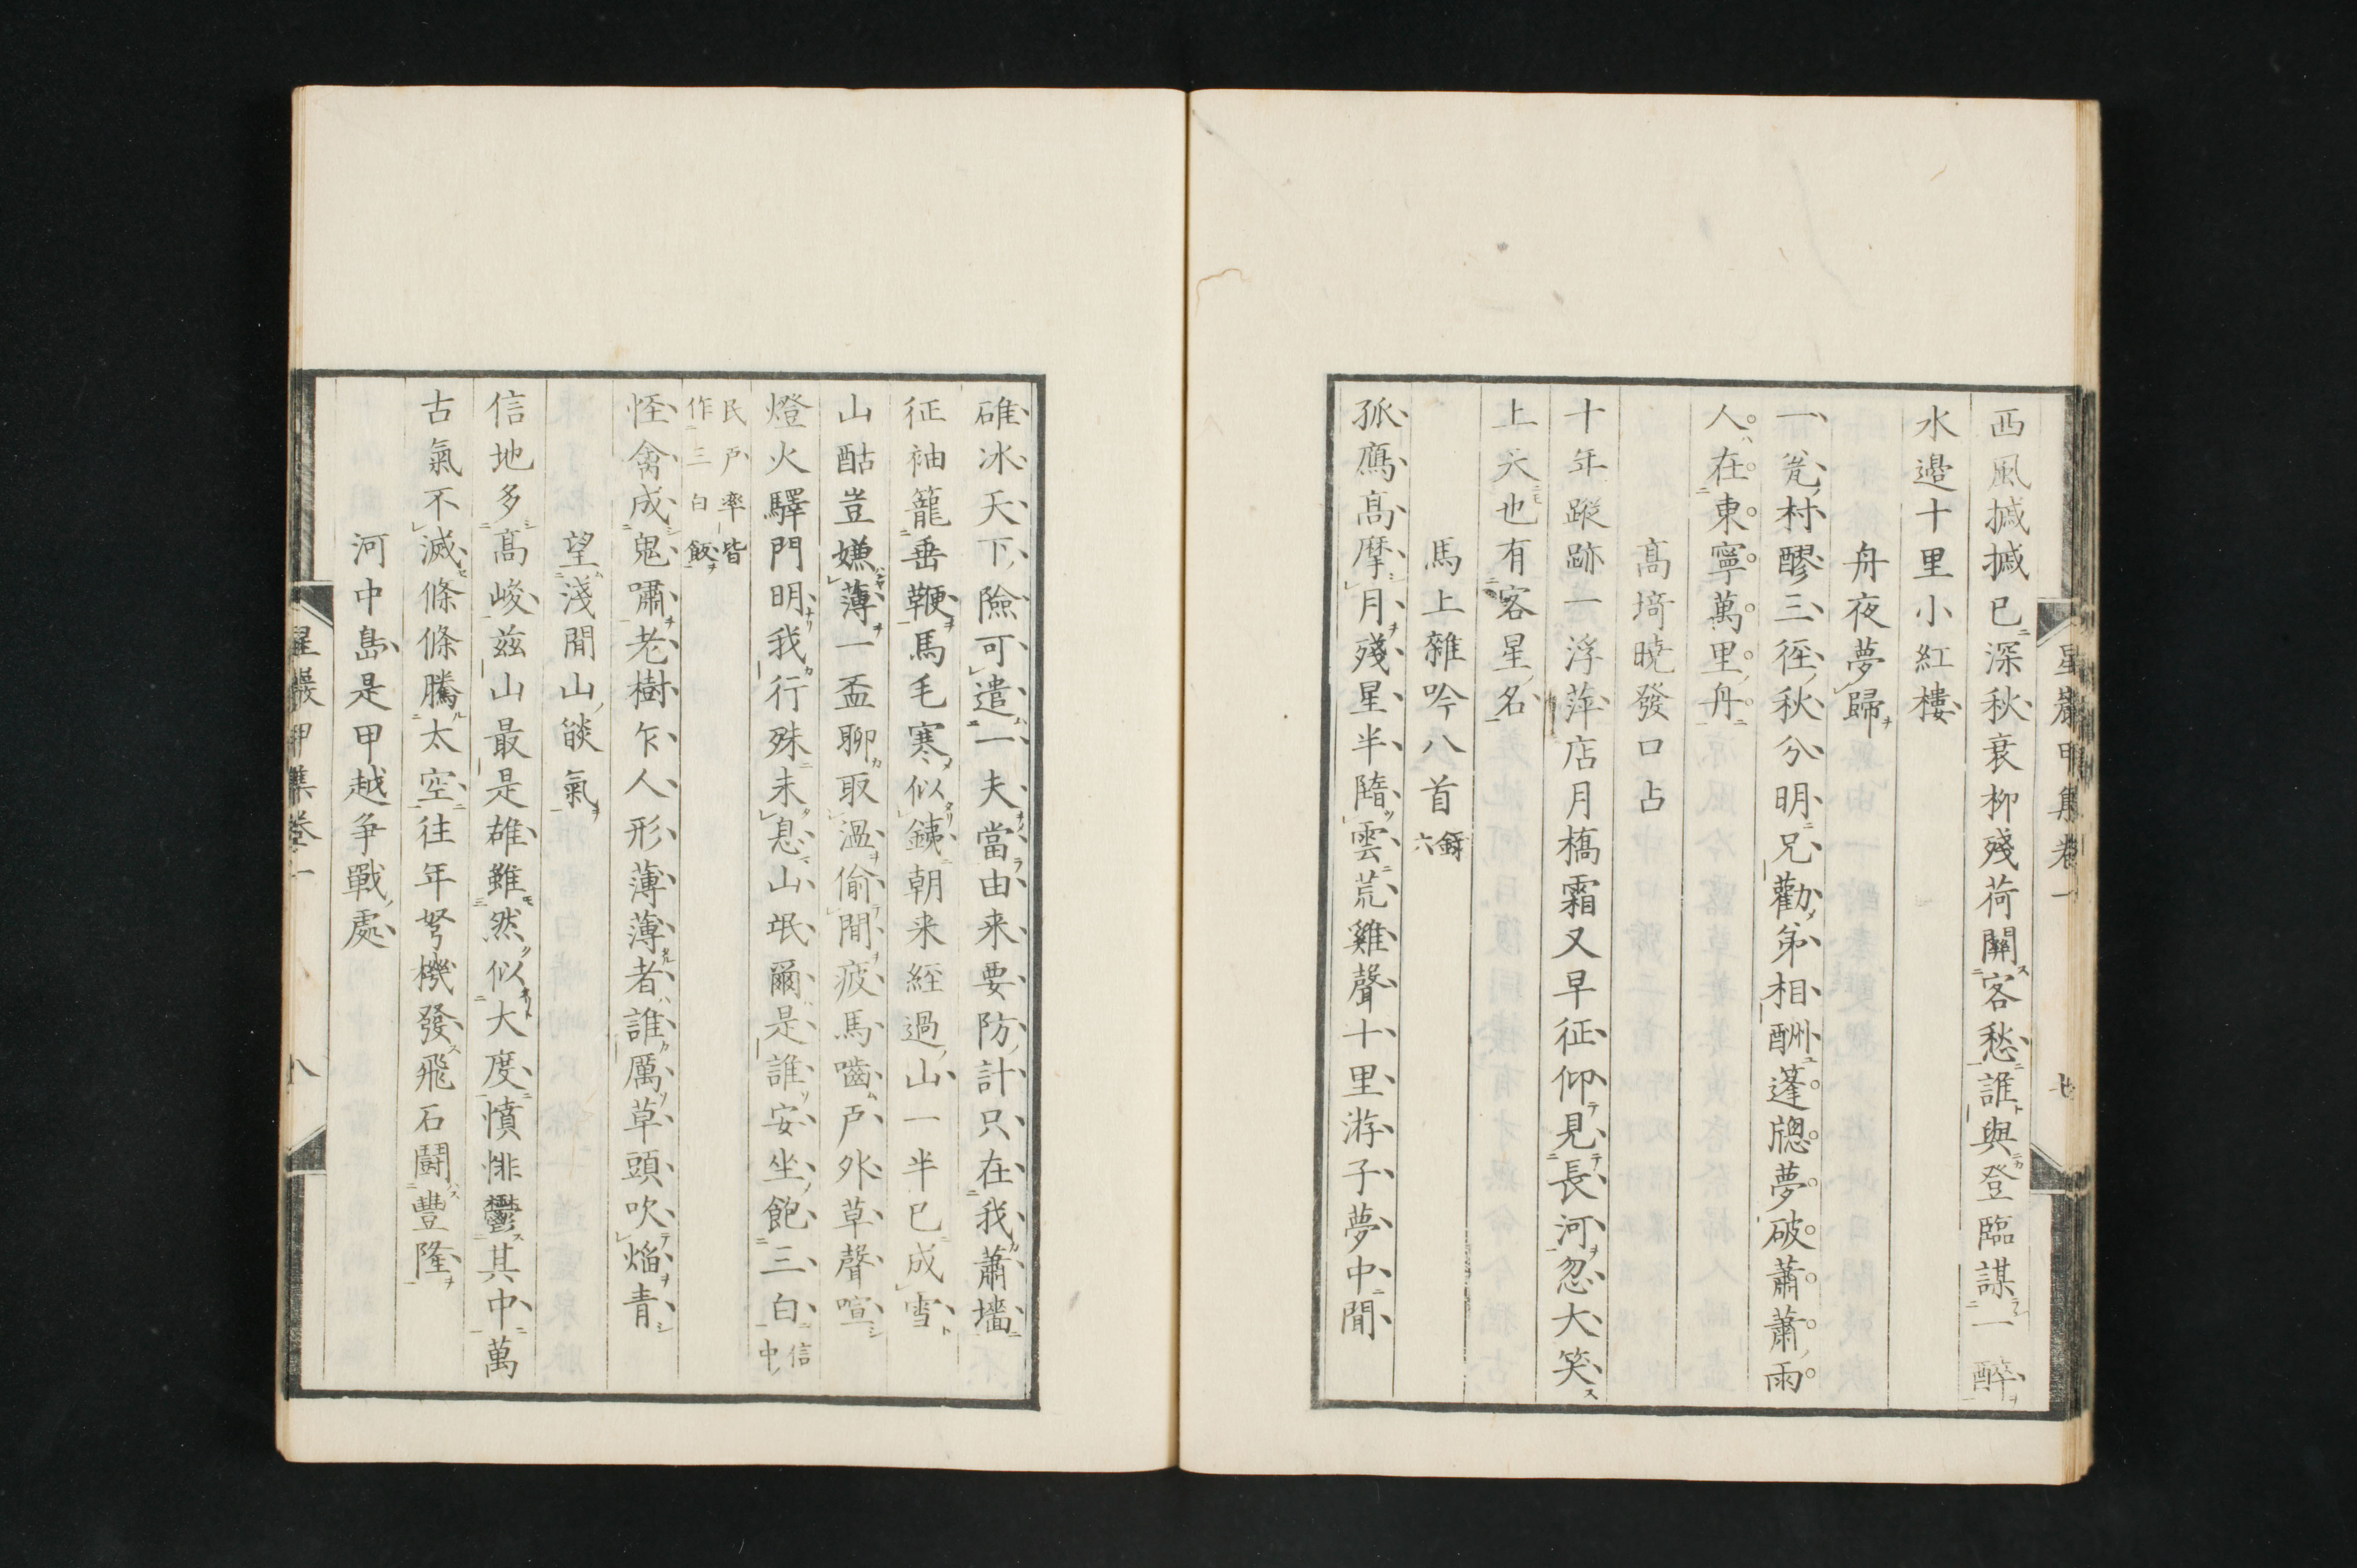 星巖甲集卷一 七
西風摵摵已深秋衰柳殘荷關客愁誰與登臨謀一醉
水邊十里小紅樓
舟夜夢歸
一瓮村醪三徑秋分明兄勸弟相酬蓬牕夢破蕭蕭雨
人在東寧萬里舟
髙埼曉發口占
十年蹤跡一浮萍店月橋霜又早征仰見長河忽大笑
上天也有客星名
馬上雜吟八首錄六
孤鴈髙摩月殘星半墮雲荒雞聲十里游子夢中聞
碓冰天下險可遣一夫當由来要防計只在我蕭墻
征袖籠垂鞭馬毛寒似銕朝来経過山一半已成雪
山酤豈嫌薄一盃聊取溫偷閒疲馬嚙戶外草聲喧
燈火驛門明我行殊未息山氓爾是誰安坐飽三白信中
民戶率皆
作三白飯
怪禽成鬼嘯老樹乍人形薄薄者誰厲草頭吹焔青
望淺間山燄氣
信地多髙峻兹山最是雄雖然似大度憤悱鬱其中萬
古氣不滅條條騰太空往年弩機發飛石鬪豐隆
河中島是甲越争戰處
星巖甲集卷一 八